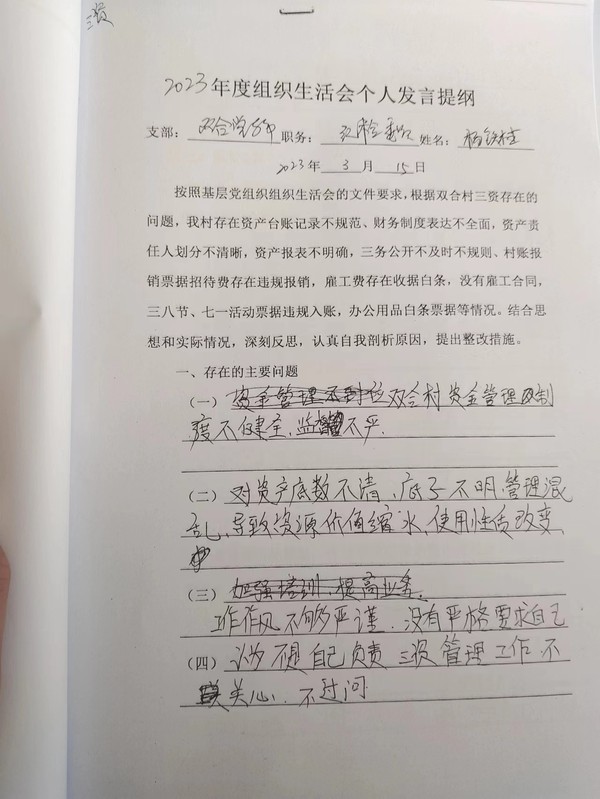 三资
2023年度组织生活会个人发言提纲
支部: 双合党支部 职务: 姓名:
2023年 3 月 15日
按照基层党组织组织生活会的文件要求,根据双合村三资存在的
问题,我村存在资产台账记录不规范、财务制度表达不全面,资产责
任人划分不清晰,资产报表不明确,三务公开不及时不规则、村账报
销票据招待费存在违规报销,雇工费存在收据白条,没有雇工合同,
三八节、七一活动票据违规入账,办公用品白条票据等情况。结合思
想和实际情况,深刻反思,认真自我剖析原因,提出整改措施。
一、存在的主要问题
(一) 资金管理不到位双合村资金管理制
度不健全、监督不严.
(二) 对资产底数不清、底子不明、管理混
乱、导致资源价值缩水、使用性质改变、
(三) 加强培训、提高业务.
工作作风不够严谨、没有严格要求自己
(四) 认为不是自己负责三资管理工作、不
关心、不过问